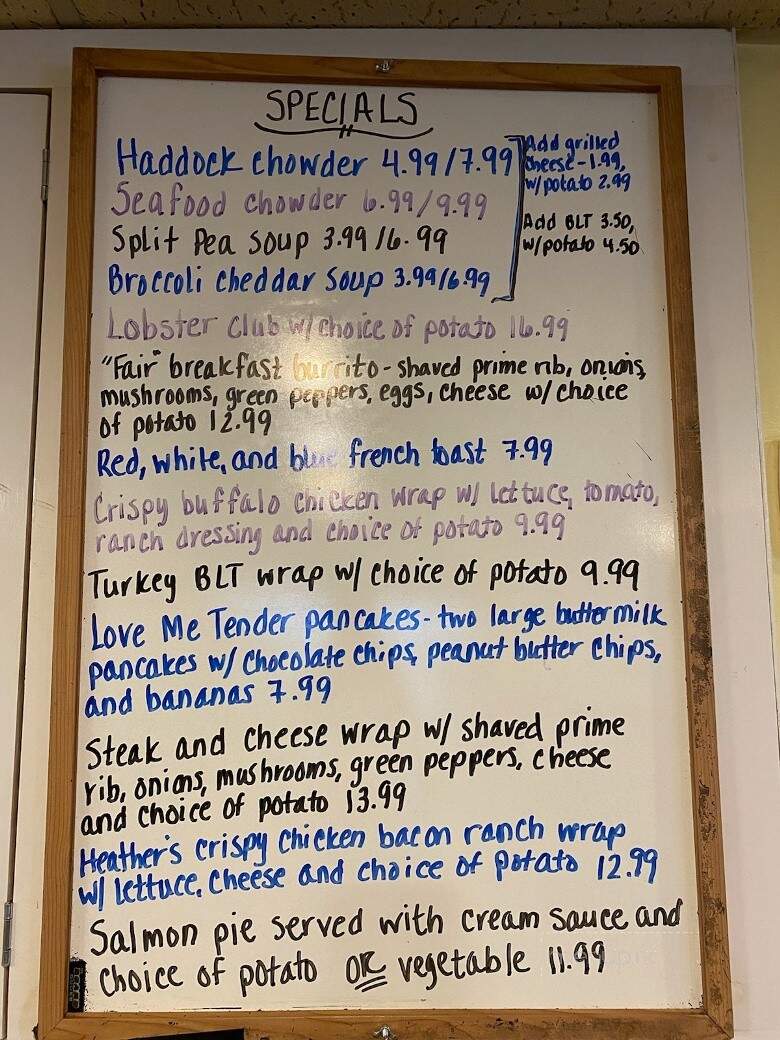 SPECIALS
Haddock chowder 4.99/7.99
Seafood chowder 6.99/9.99
Split Pea soup 3.99/6.99
Broccoli cheddar soup 3.99/6.99
Add grilled
cheese-1.99,
w/potato 2.99
Add BLT 3.50,
w/potato 4.50
Lobster club w/choice of potato 16.99
"Fair" breakfast burrito - shaved prime rib, onions,
mushrooms, green peppers, eggs, cheese w/ choice
of potato 12.99
Red, white, and blue french toast 7.99
Crispy buffalo chicken wrap w/ lettuce, tomato,
ranch dressing and choice of potato 9.99
Turkey BLT wrap w/ choice of potato 9.99
Love Me Tender pancakes - two large buttermilk
pancakes w/ chocolate chips, peanut butter chips,
and bananas 7.99
Steak and cheese wrap w/ shaved prime
rib, onions, mushrooms, green peppers, cheese
and choice of potato 13.99
Heather's crispy chicken bacon ranch wrap
w/ lettuce, cheese and choice of potato 12.99
Salmon pie served with cream sauce and
choice of potato OR vegetable 11.99